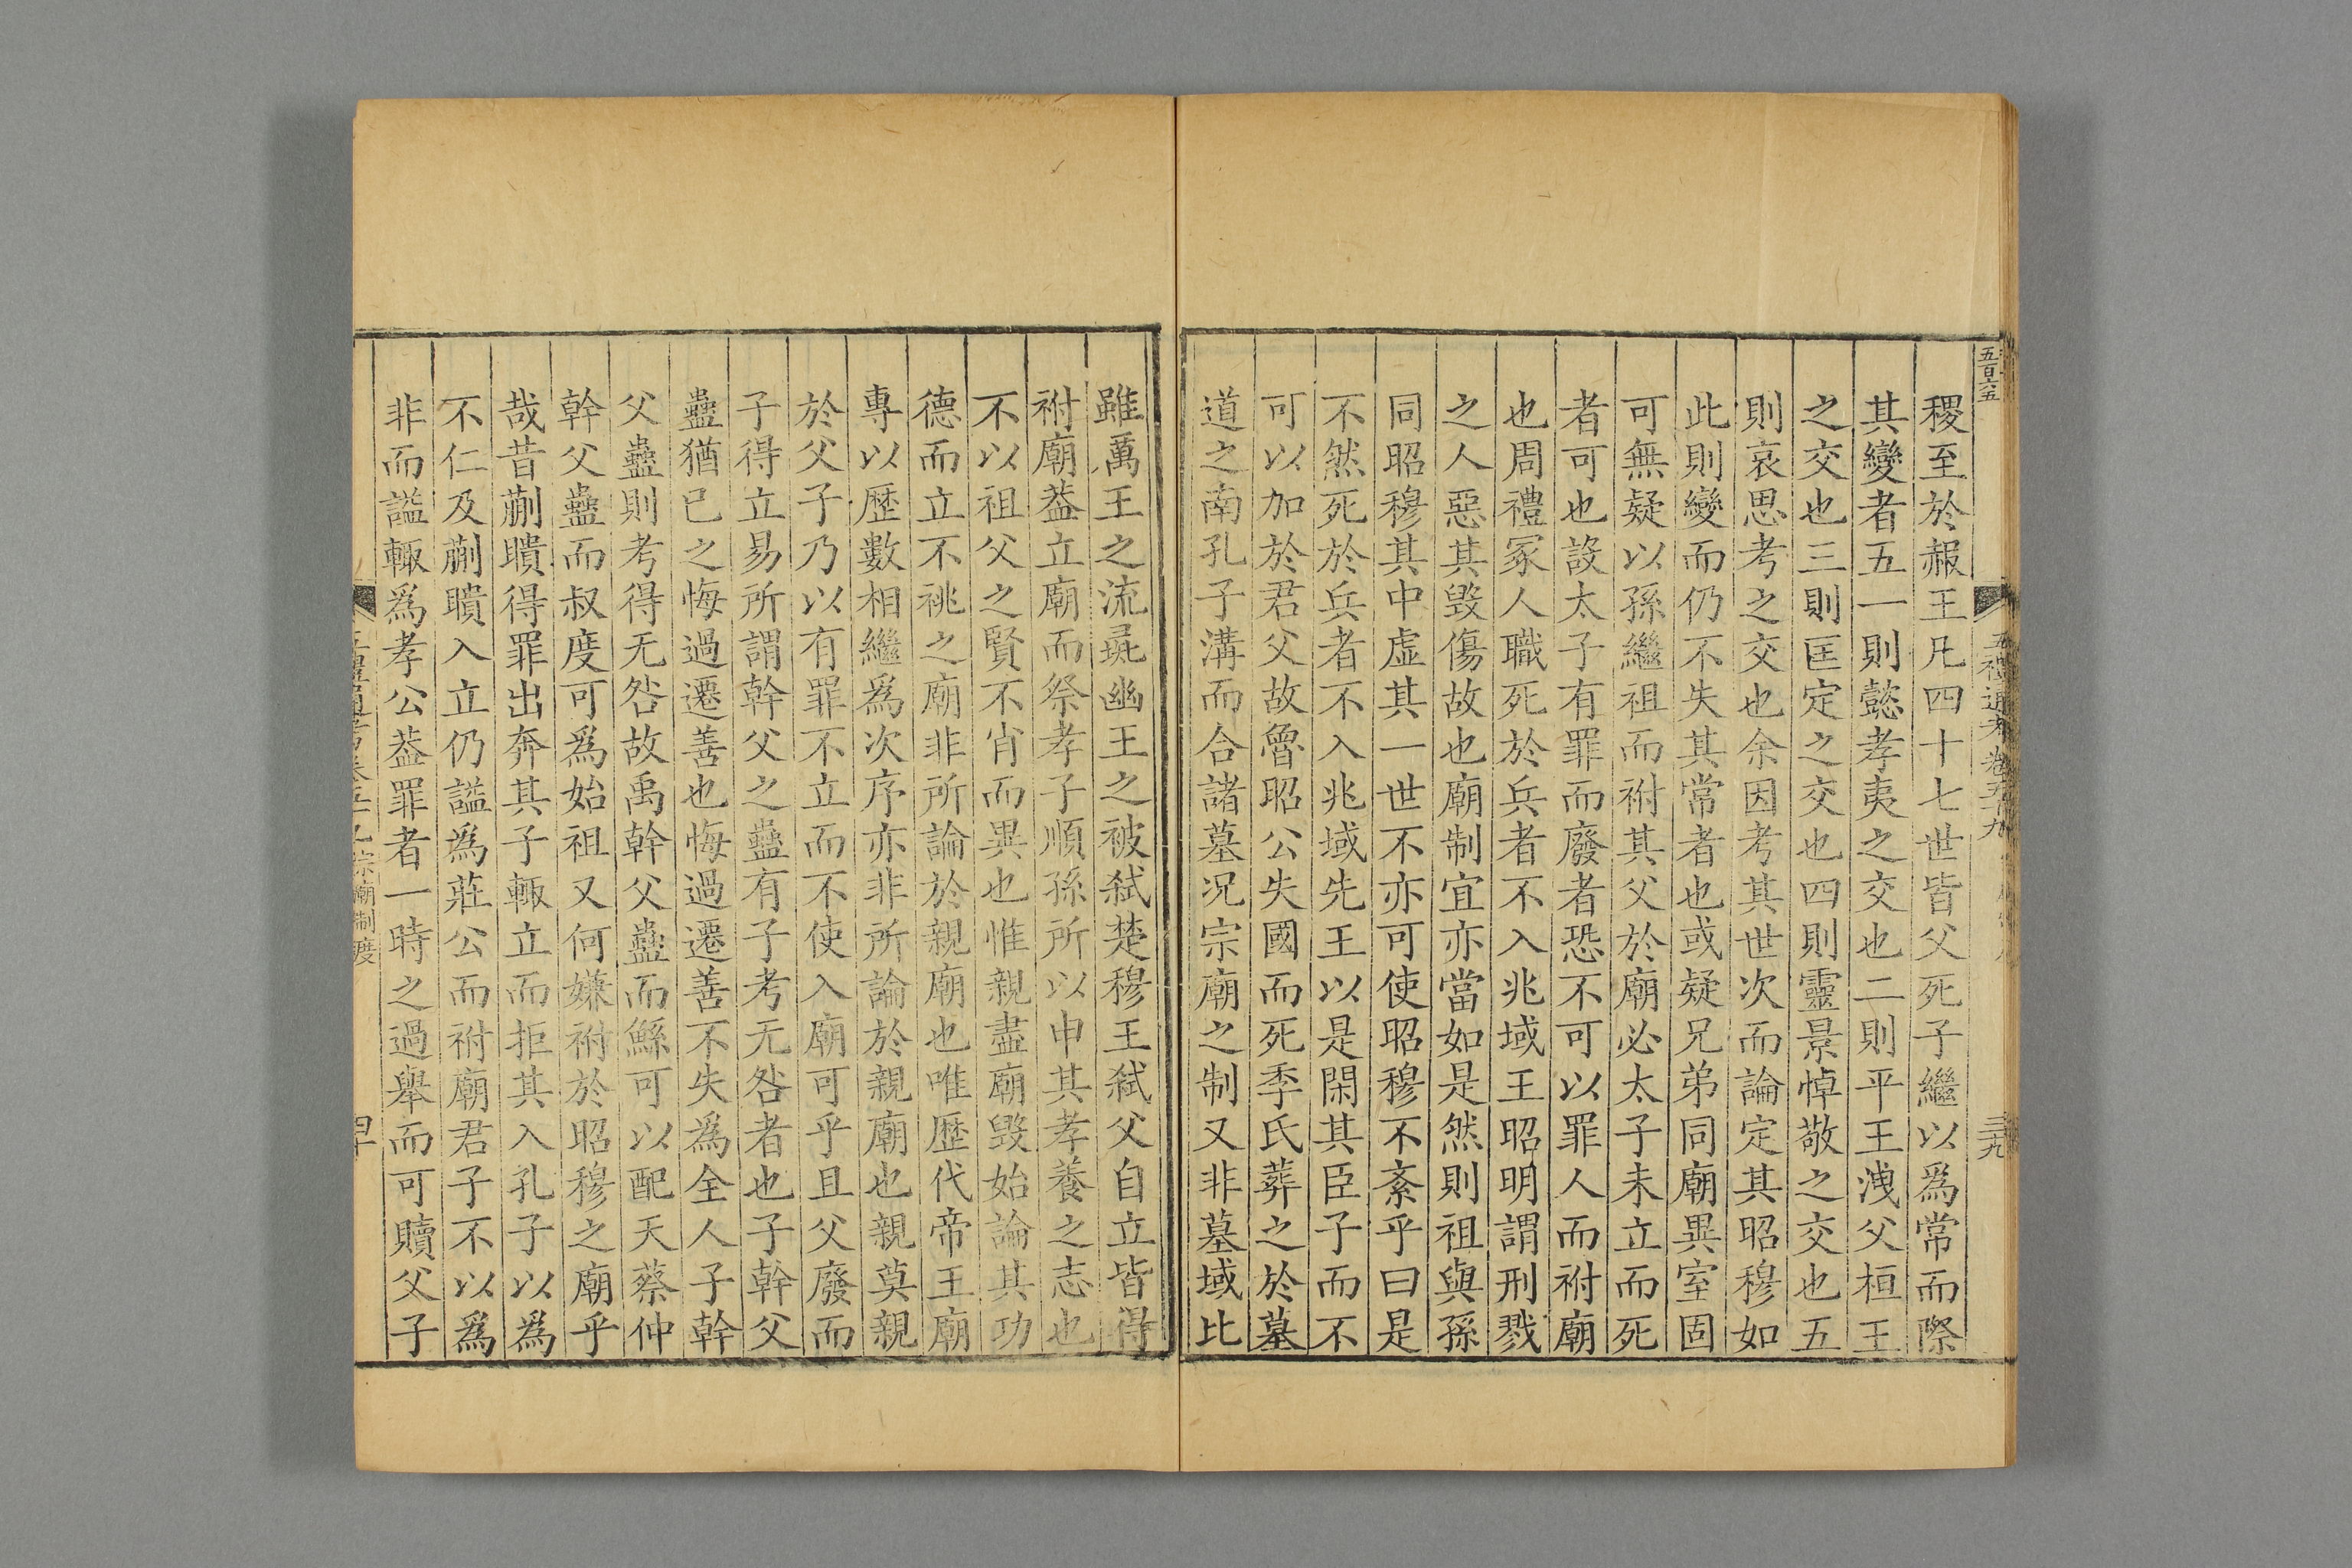 五百六五
五禮通考卷五十九
三九
稷至於赧王凡四十七世皆父死子繼以爲常而際
其變者五一則懿孝夷之交也二則平王洩父桓王
之交也三則匡定之交也四則靈景悼敬之交也五
則哀思考之交也余因考其世次而論定其昭穆如
此則變而仍不失其常者也或疑兄弟同廟異室固
可無疑以孫繼祖而祔其父於廟必太子未立而死
者可也設太子有罪而廢者恐不可以罪人而祔廟
也周禮冢人職死於兵者不入兆域王昭明謂刑戮
之人惡其毀傷故也廟制宜亦當如是然則祖與孫
同昭穆其中虛其一世不亦可使昭穆不紊乎曰是
不然死於兵者不入兆域先王以是閑其臣子而不
可以加於君父故魯昭公失國而死季氏葬之於墓
道之南孔子溝而合諸墓况宗廟之制又非墓域比
雖萬王之流彘幽王之被弑楚穆王弑父自立皆得
祔廟葢立廟而祭孝子順孫所以申其孝養之志也
不以祖父之賢不肖而異也惟親盡廟毀始論其功
德而立不祧之廟非所論於親廟也唯歴代帝王廟
專以歴數相繼爲次序亦非所論於親廟也親莫親
於父子乃以有罪不立而不使入廟可乎且父廢而
子得立易所謂幹父之蠱有子考无咎者也子幹父
蠱猶已之悔過遷善也悔過遷善不失爲全人子幹
父蠱則考得无咎故禹幹父蠱而鯀可以配天蔡仲
幹父蠱而叔度可爲始祖又何嫌祔於昭穆之廟乎
哉昔蒯聵得罪出奔其子輙立而拒其入孔子以爲
不仁及蒯聵入立仍謚爲莊公而祔廟君子不以爲
非而謚輙爲孝公葢罪者一時之過舉而可贖父子
宗廟制度
四十